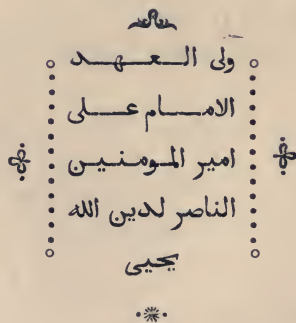 ولى العهد
الامام على
امير المومنين
الناصر لدين الله
يحيى